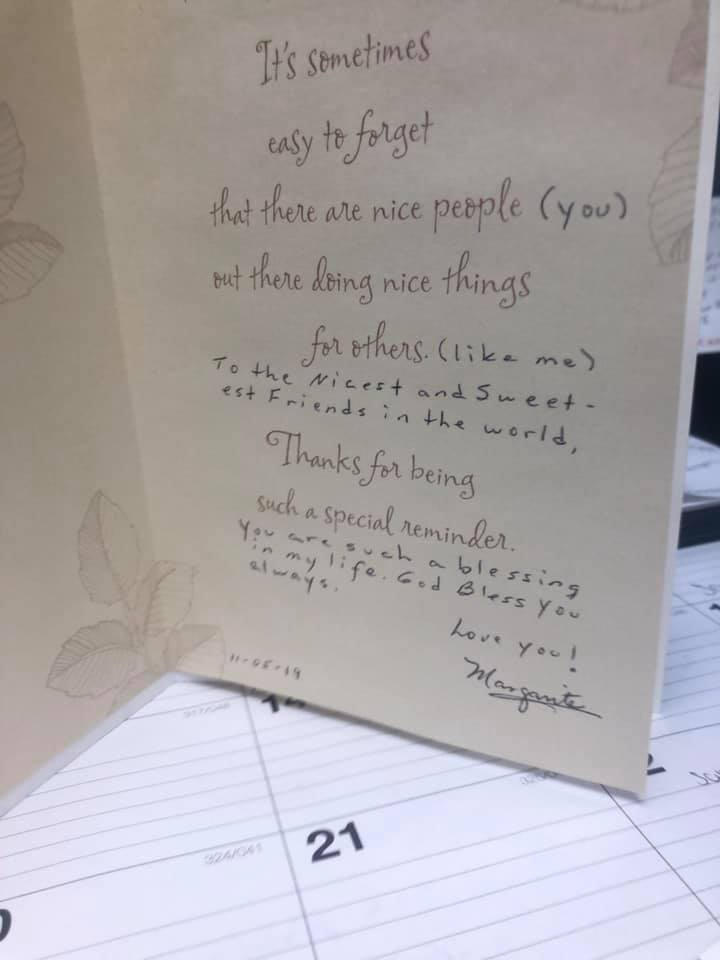 It's sometimes
easy to forget
that there are nice people (you)
out there doing nice things
for others. (like me)
To the Nicest and Sweet-
est Friends in the world,
Thanks for being
such a special reminder.
You are such a blessing
in my life. God Bless you
always.
Love you!
Margarite
11-05-19
14
21
324/041